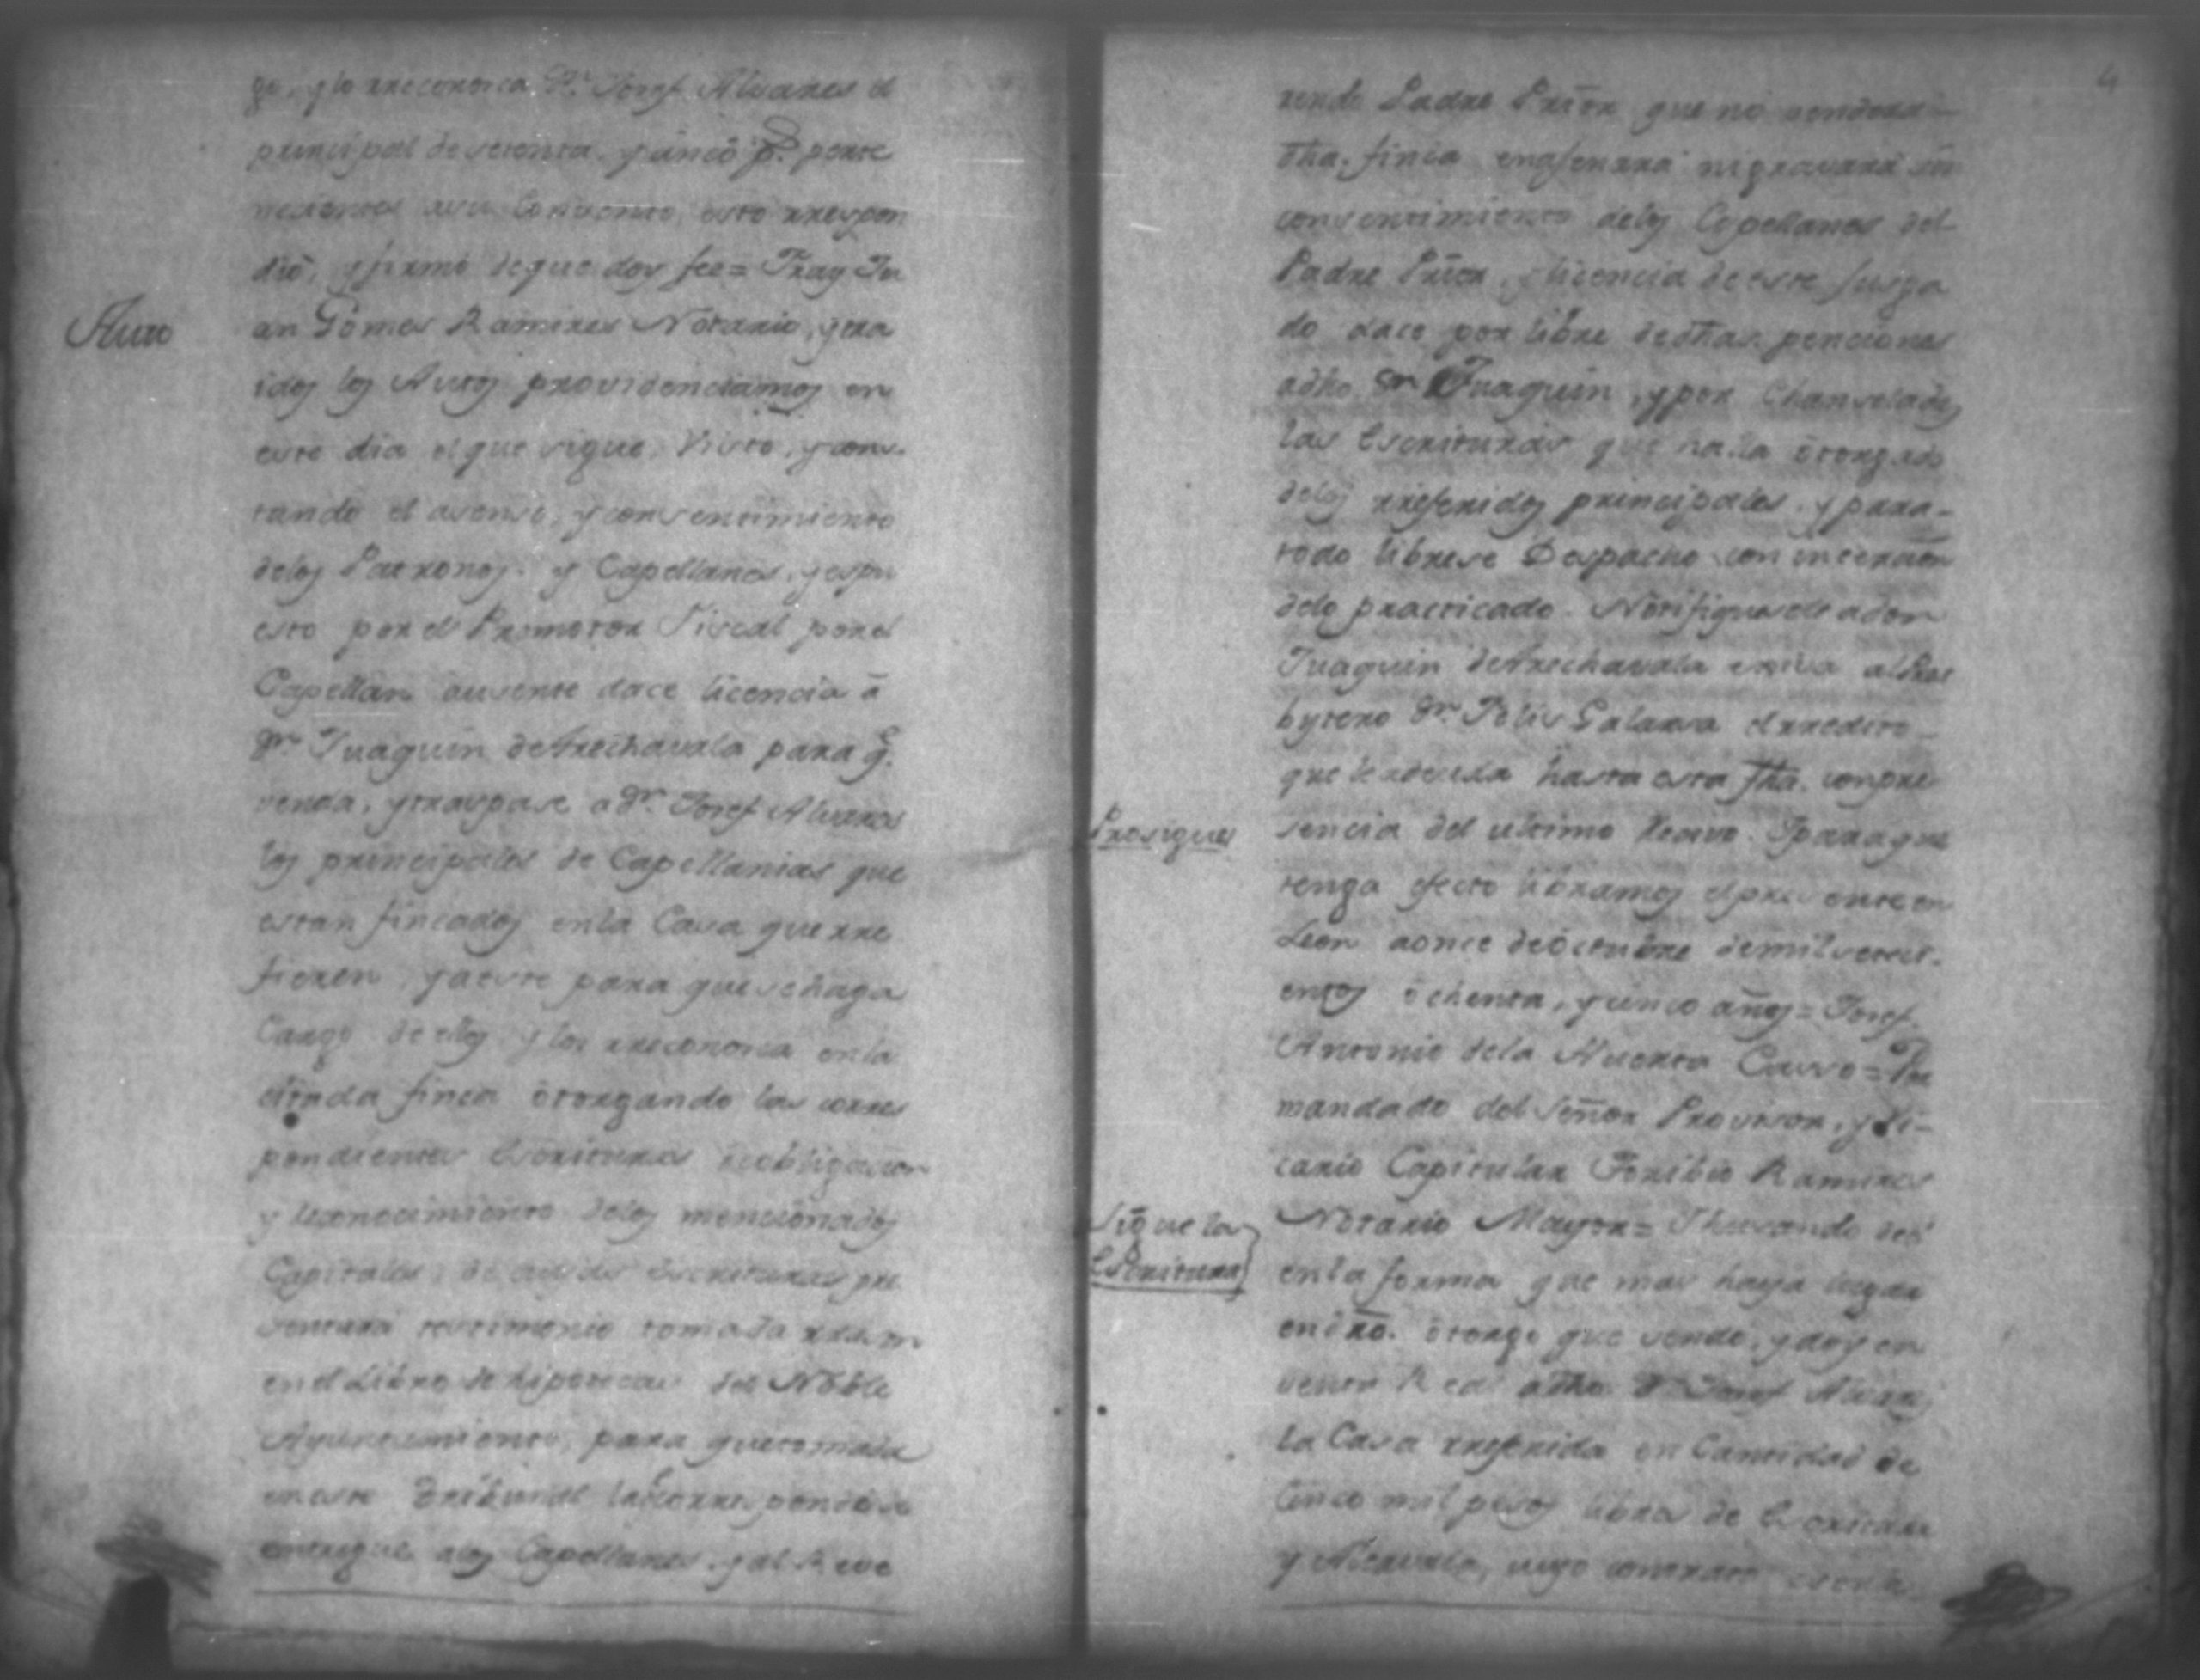 go, y lo rreconosca Dn. Josef Alvares el
principal de setenta, y cinco ps. perte
necientes a su Convento, esto rrespon
dio, y firmó de que doy fee = Fray Ju
Auto
an Gómes Ramires Notario, y tra
idos los Autos providenciamos en
este dia el que sigue. Visto, y cons-
tando el asenso, y consentimiento
delos Patronos, y Capellanes, y espu
esto por el Promotor Fiscal por el
Capellan ausente dace licencia á
Dn Juaquin de Arechavala para q.
venda, y traspase a Dn. Josef Alvares
los principales de Capellanias que
estan fincados en la Casa que rre
fieren, y a este para que se haga
Cargo de ellos y los rreconosca en la
citada finca otorgando las corres
pondientes Escrituras de obligacion
y reconocimiento delos mencionados
Capitales, de cuyas Escrituras pre
sentará testimonio tomada rrason
en el Libro de hipotecas del Noble
Ayuntamiento, para que tomada
en este Tribunal la correspondiente
entregue a los Capellanes, y al Reve
4
rendo Padre Prior que no venderá
dha. finca enagenará ni gravará sin
consentimiento delos Capellanes del
Padre Prior, y licencia de este Jusga
do dace por libre de dhas. penciones
a dho. Dn Juaquin, y por Chanselados
las Escrituras que halla otorgado
delos rreferidos principales, y para-
todo librese Despacho con incercion
delo practicado. Notifiquesele a don
Juaquin de Arechavala exiva al Pres
bytero Dn. Felis Galarsa el rredito
que le adeuda hasta esta fha. con pre
Prosigue
sencia del ultimo Recivo. Y para que
tenga efecto libramos el presente en
Leon a once de octubre de mil setes.
entos ochenta, y cinco años = Josef
Antonio dela Huerta Casso = Por
mandado del Señor Provisor, y Vi-
cario Capitular Toribio Ramires
Sigue la
Escritura
Notario Mayor = Y husando de el
en la forma que mas haya lugar
en dro. otorgo que vendo, y doy en
venta Real a dho. Dn Josef Alvares
la Casa rreferida en Cantidad de
Cinco mil pesos libres de Escritura
y Alcavala, cuyo contrato